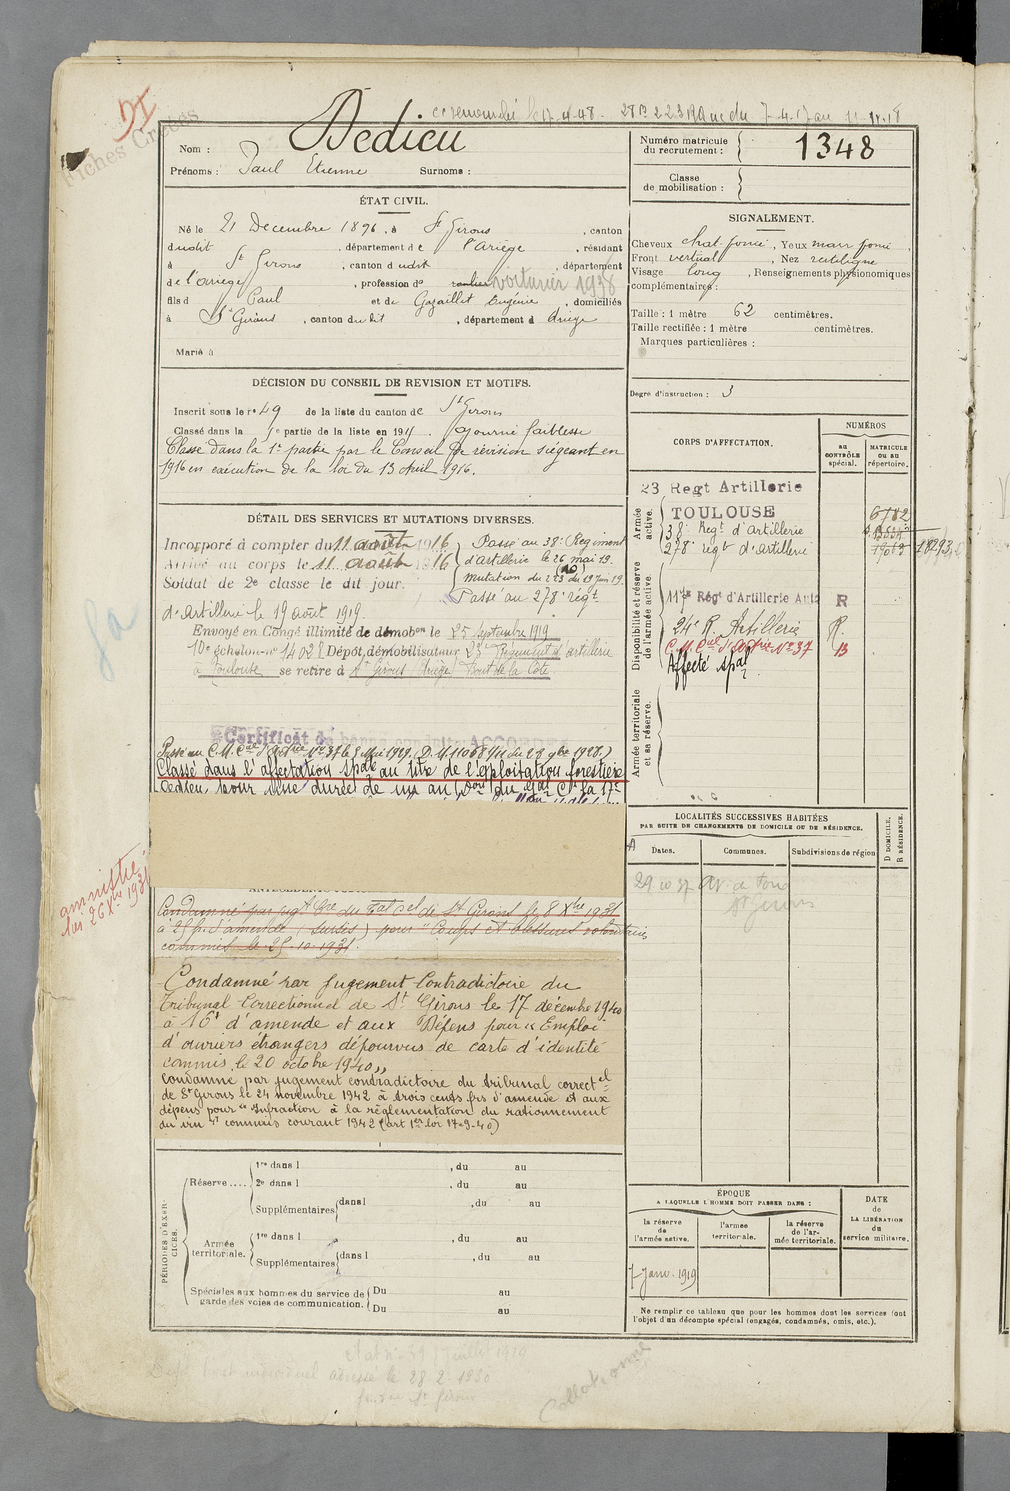 Fiches Créées
Nom : Dedieu
Prénoms : Paul Etienne Surnoms :
Numéro matricule du recrutement : 1348
Classe de mobilisation :
ÉTAT CIVIL.
Né le 21 Decembre 1896, à St Girons, canton
dudit, département de l'Ariège, résidant
à St Girons, canton dudit, département
de l'Ariège, profession de voiturier 1938
fils d Paul et de Eugénie, domiciliés
à St Girons, canton dudit, département d Ariège
Marié à
SIGNALEMENT.
Cheveux chat. foncé, Yeux marr foncé,
Front vertical, Nez rectiligne
Visage long, Renseignements physionomiques
complémentaires :
Taille : 1 mètre 62 centimètres.
Taille rectifiée : 1 mètre centimètres.
Marques particulières :
Degré d'instruction : 3
DÉCISION DU CONSEIL DE REVISION ET MOTIFS.
Inscrit sous le no 49 de la liste du canton de St Girons
Classé dans la 5e partie de la liste en 1915. Ajourné faiblesse
Classé dans la 1re partie par le Conseil de révision siégeant en
1916 en exécution de la loi du 13 Avril 1916.
DÉTAIL DES SERVICES ET MUTATIONS DIVERSES.
Incorporé à compter du 11 août 1916
Arrivé au corps le 11 août 1916
Soldat de 2e classe le dit jour.
Passé au 38e Régiment
d'artillerie le 26 mai 19.
mutation du 19 Juin 19.
Passé au 278e régt
d'Artillerie le 19 août 1919
Envoyé en Congé illimité de démobon le 25 Septembre 1919
10e échelon no Dépôt démobilisateur 23e Régiment d'artillerie
à Toulouse se retire à St Girons Ariège
Certificat de bonne conduite ACCORDÉ
Passé au C.M. d'Artie No 37 le 5 Mai 1929.
Classé dans l'affectation spale au titre de l'exploitation forestière
Dedieu pour une durée de un an
CORPS D'AFFECTATION.
NUMÉROS
au CONTRÔLE spécial.
MATRICULE ou au répertoire.
Armée active.
23 Regt Artillerie
TOULOUSE
38e Regt d'Artillerie
278e régt d'Artillerie
6782
Disponibilité et réserve de l'armée active.
117e Régt d'Artillerie Auto R
24e R. Artillerie R.
C.M. d'Artie No 37 B
Affecté spal
Armée territoriale et sa réserve.
LOCALITÉS SUCCESSIVES HABITÉES
PAR SUITE DE CHANGEMENTS DE DOMICILE OU DE RÉSIDENCE.
Dates. Communes. Subdivisions de région
D DOMICILE. R RÉSIDENCE.
29 10 37
St Girons
amnistié
loi 26 Xbre 1931
Condamné par jugt du de St Girons le 8 Xbre 1931
à 25 f. d'amende (sursis) pour "Coups et blessures volontaires
commis le 25-10-1931.
Condamné par Jugement Contradictoire du
Tribunal Correctionnel de St Girons le 17 décembre 1940
à 16f d'amende et aux Dépens pour « Emploi
d'ouvriers étrangers dépourvus de carte d'identité
commis le 20 octobre 1940 »
Condamné par jugement contradictoire du tribunal correctel
de St Girons le 24 novembre 1942 à trois cents frs d'amende et aux
dépens pour "Infraction à la règlementation du rationnement
du vin" commis courant 1942 (art 1er loi 17-9-40)
PÉRIODES D'EXERCICES.
Réserve .... 1re dans l , du au
2e dans l , du au
Supplémentaires dans l , du au
Armée territoriale. 1re dans l , du au
Supplémentaires dans l , du au
Spéciales aux hommes du service de garde des voies de communication. Du au
Du au
ÉPOQUE
A LAQUELLE L'HOMME DOIT PASSER DANS :
la réserve de l'armée active.
l'armée territoriale.
la réserve de l'armée territoriale.
DATE de LA LIBÉRATION du service militaire.
Janv. 1919
Ne remplir ce tableau que pour les hommes dont les services font
l'objet d'un décompte spécial (engagés, condamnés, omis, etc.).
Collationné